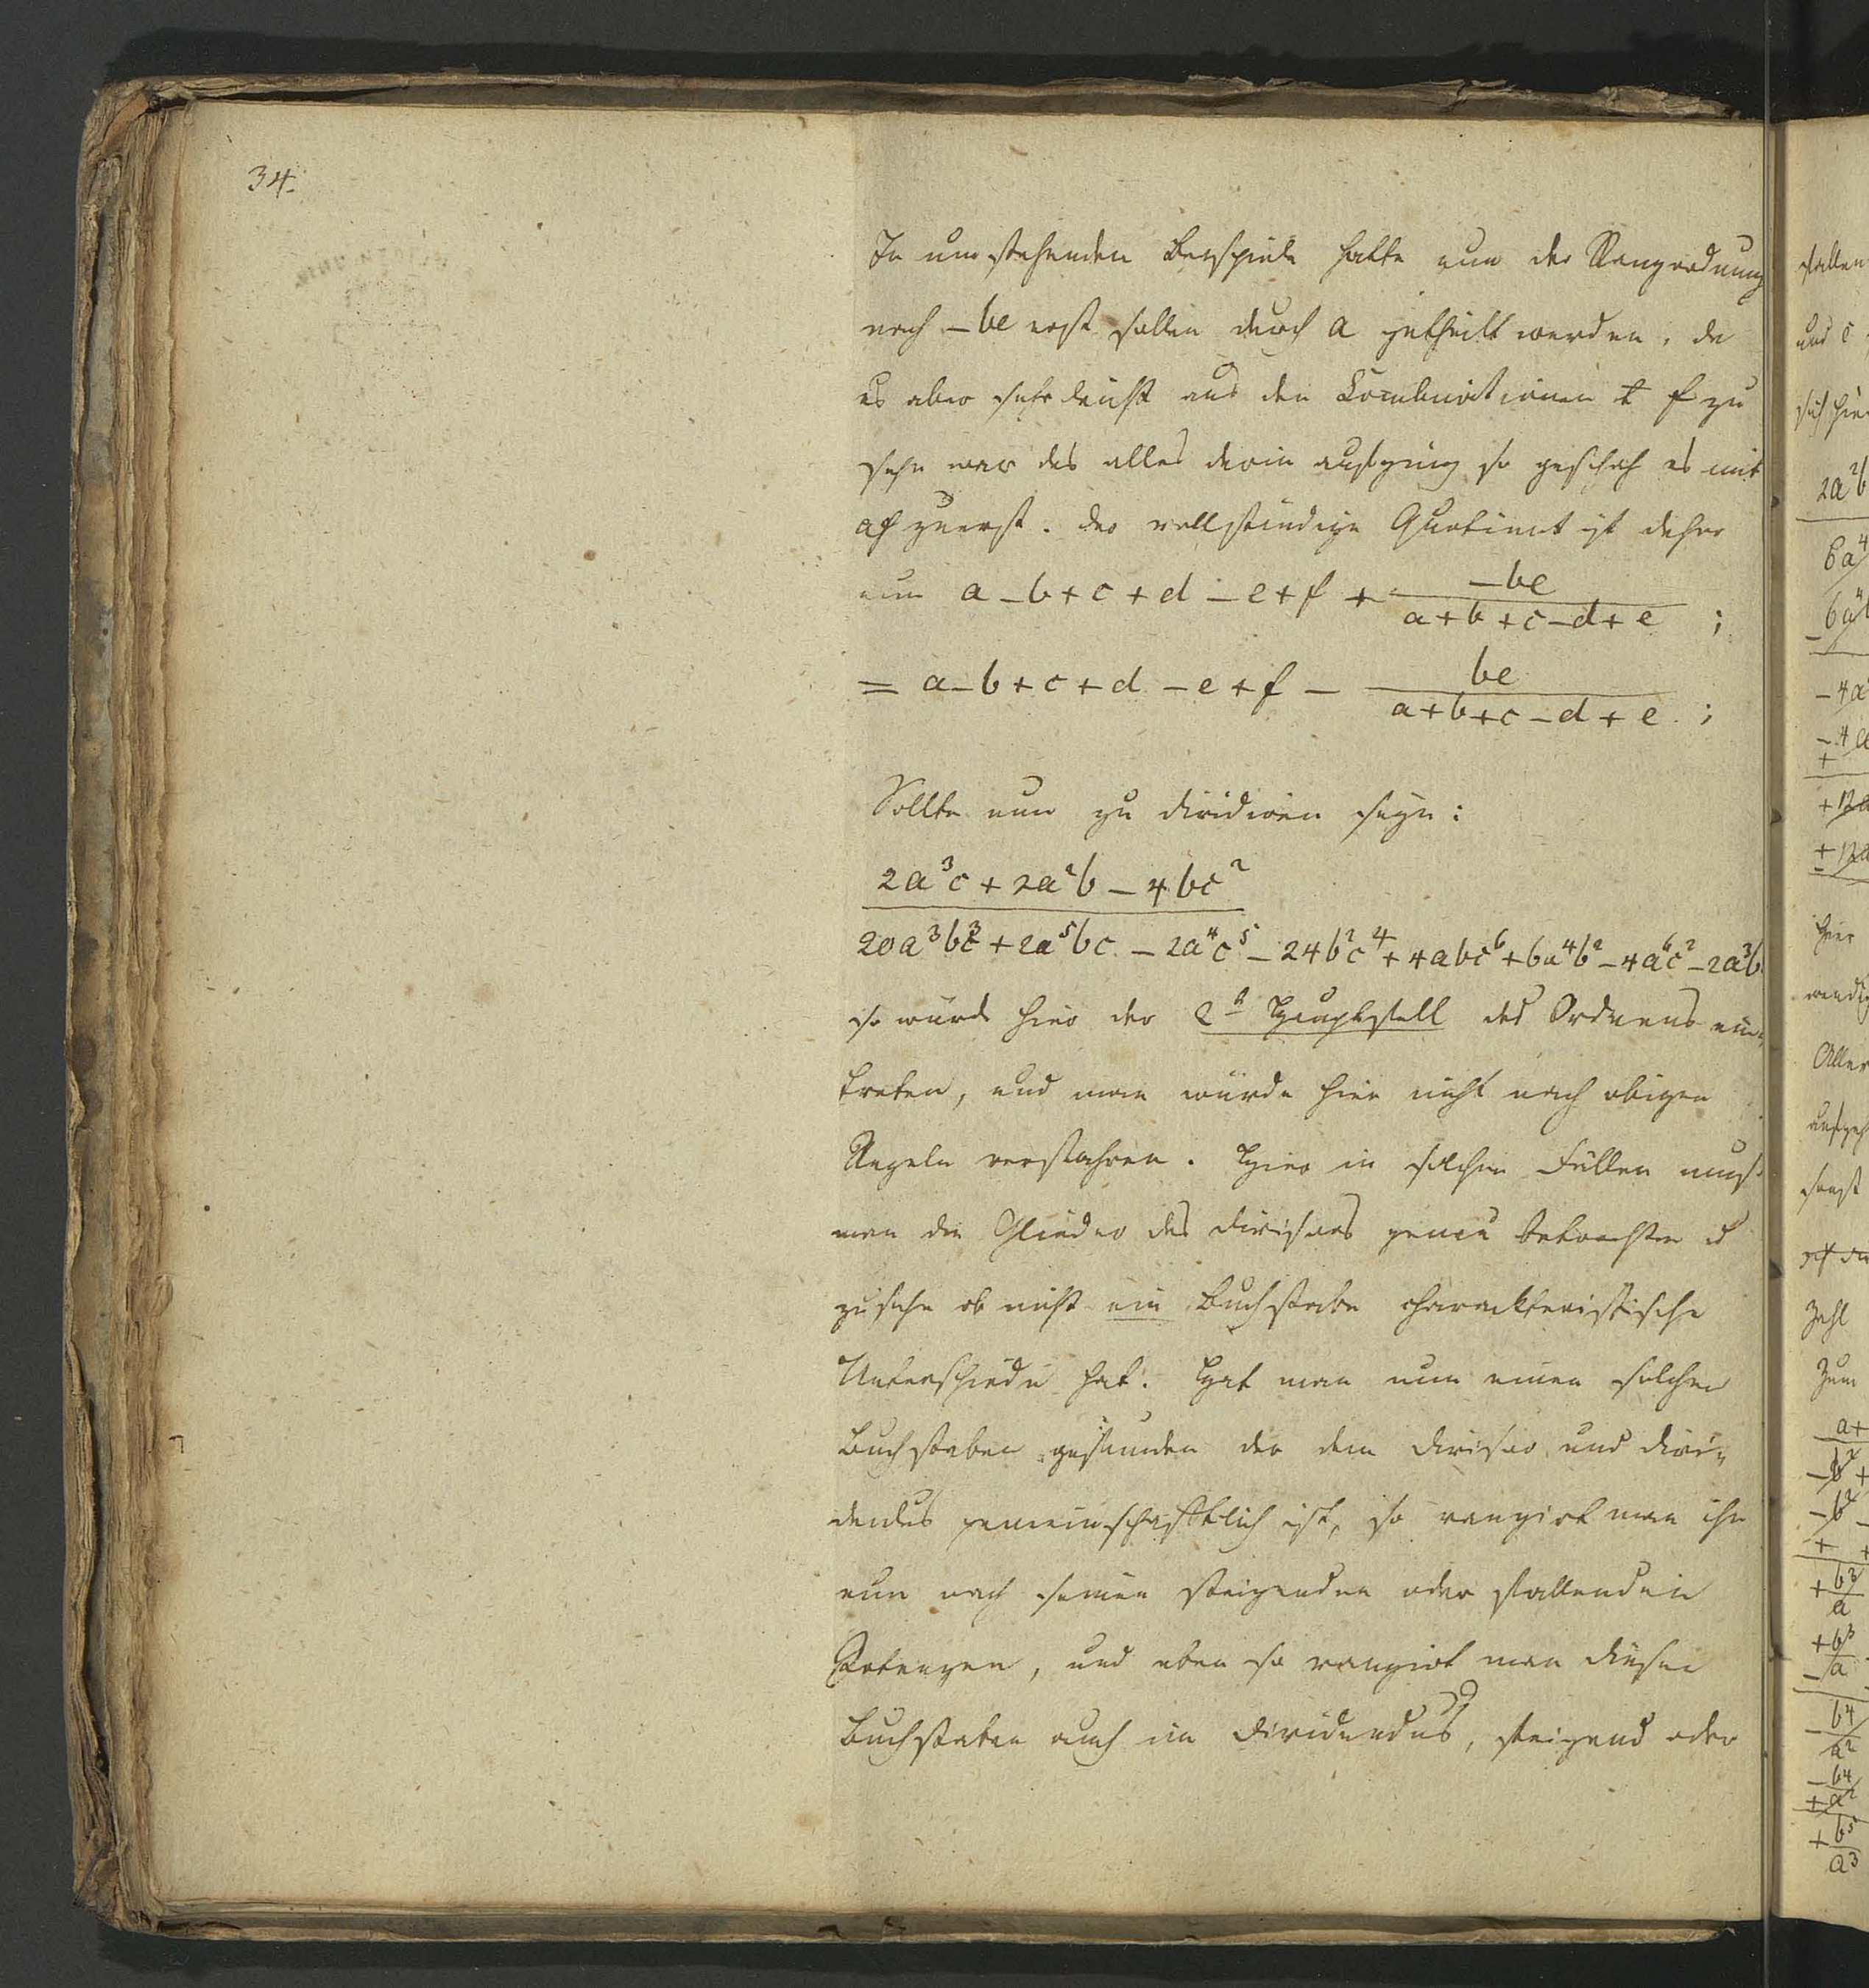 34.
In umstehenden Beispiele hatte nun der Rangordnung
nach – be erst sollen durch a getheilt werden, da
es aber sehr leicht aus den Combinationen t f zu
sehn war das alles darin aufging so geschah es mit
af zuerst. Der vollständige Quotient ist daher
nun a – b + c + d – e + f + –be / a + b + c – d + e ;
= a – b + c + d – e + f – be / a + b + c – d + e ;
Sollte nun zu dividiren seyn:
2a³c + 2a²b – 4bc²
20a³bc³ + 2a⁵bc – 2a⁴c⁵ – 24b²c⁴ + 4abc⁶ + 6a⁴b² – 4a⁶c² – 2a³b
so würde hier der 2te Hauptfall des Ordnens ein
treten, und man würde hier nicht nach obigen
Regeln verfahren. Hier in solchen Fällen muß
man die Glieder des Divisors genau betrachten u
zusehn ob nicht ein Buchstabe charackteristische
Unterschiede hat. Hat man nun einen solchen
Buchstaben gefunden der dem Divisor und Divi-
dendus gemeinschaftlich ist, so rangirt man ihn
nun nach seinen steigenden oder fallenden
Potenzen, und eben so rangirt man diesen
Buchstaben auch im Dividendus, steigend oder
fallen
und c
sich hier
2a²b
6a⁴
– 6a⁴b
– 4a
– 4a
+
+ 12a
+ 12a
–
hier
wendig
Aller
aufgeh
sonst
Zahl
Zum
a +
– b² +
– b² –
+ +
+ b³
a
+ b³
– a
– b⁴
a²
– b⁴
+ a²
+ b⁵
a³